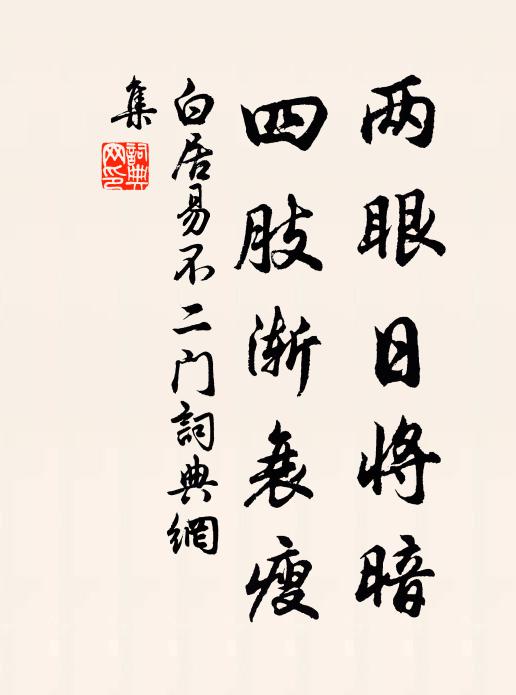 两眼日将暗
四肢渐衰瘦
白居易不二门詞典網
集
詞典
网印